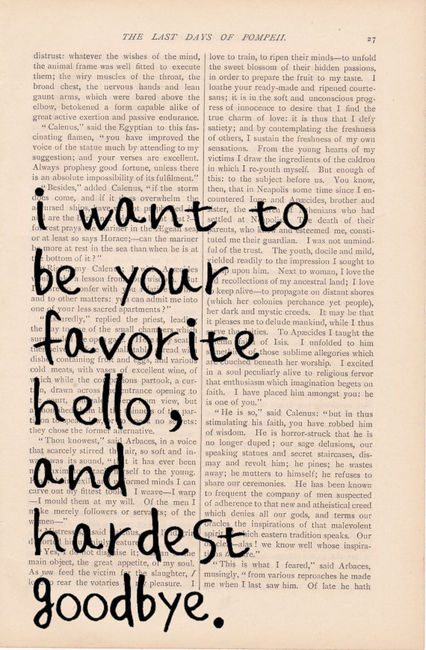 THE LAST DAYS OF POMPEII. 27
i want to
be your
favorite
hello,
and
hardest
goodbye.
distrust: whatever the wishes of the mind,
the animal frame was well fitted to execute
them; the wiry muscles of the throat, the
broad chest, the nervous hands and lean
gaunt arms, which were bared above the
elbow, betokened a form capable alike of
great active exertion and passive endurance.
"Calenus," said the Egyptian to this fas-
cinating flamen, "you have improved the
voice of the statue much by attending to my
suggestion; and your verses are excellent.
Always prophesy good fortune, unless there
is an absolute impossibility of its fulfilment."
"Besides," added Calenus, "if the storm
or at least so says Horace;—can the mariner
be more at rest in the sea than when he is at
the bottom of it?"
and to other matters: can admit me into
one of your less sacred apartments?"
replied the priest,
cold meats, with vases of excellent wine, of
they chose the former alternative.
"Thou knowest," said Arbaces, in a voice
that scarcely stirred the air, so soft and in-
carve out my fittest tools. I weave—I warp
—I mould them at my will. Of the men I
make merely followers or servants; of the
main object, the great appetite, of my soul.
As you feed the victim for the slaughter, I
love to train, to ripen their minds—to unfold
the sweet blossom of their hidden passions,
in order to prepare the fruit to my taste. I
loathe your ready-made and ripened courte-
sans; it is in the soft and unconscious prog-
ress of innocence to desire that I find the
true charm of love: it is thus that I defy
satiety; and by contemplating the freshness
of others, I sustain the freshness of my own
sensations. From the young hearts of my
victims I draw the ingredients of the caldron
in which I re-youth myself. But enough of
this: to the subject before us. You know,
then, that in Neapolis some time since I en-
countered Ione and Apæcides, brother and
tuted me their guardian. I was not unmind-
ful of the trust. The youth, docile and mild,
yielded readily to the impression I sought to
upon him. Next to woman, I love the
recollections of my ancestral land; I love
to keep alive—to propagate on distant shores
(which her colonies perchance yet people),
her dark and mystic creeds. It may be that
it pleases me to delude mankind, while I thus
To Apæcides I taught the
of Isis. I unfolded to him
those sublime allegories which
beneath her worship. I excited
in a soul peculiarly alive to religious fervor
that enthusiasm which imagination begets on
faith. I have placed him amongst you: he
is one of you."
"He is so," said Calenus: "but in thus
stimulating his faith, you have robbed him
of wisdom. He is horror-struck that he is
no longer duped; our sage delusions, our
speaking statues and secret staircases, dis-
may and revolt him; he pines; he wastes
away; he mutters to himself; he refuses to
share our ceremonies. He has been known
to frequent the company of men suspected
of adherence to that new and atheistical creed
which denies all our gods, and terms our
oracles the inspirations of that malevolent
of which eastern tradition speaks. Our
alas! we know well whose inspira-
"This is what I feared," said Arbaces,
musingly, "from various reproaches he made
me when I last saw him. Of late he hath